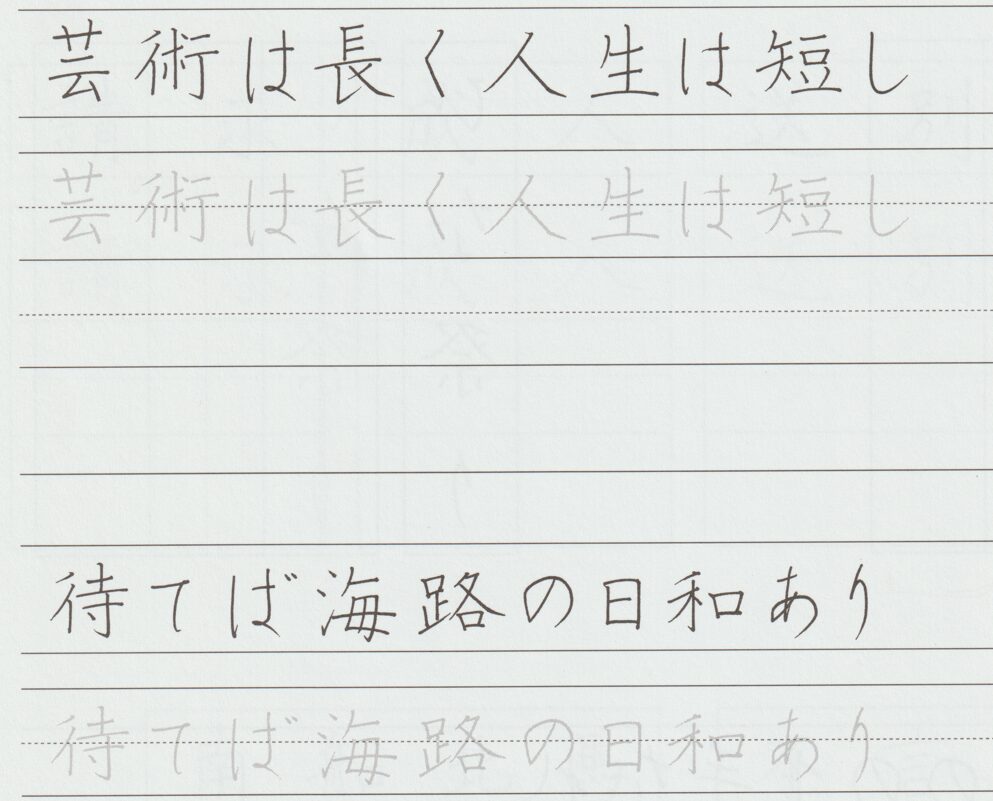 芸術は長く人生は短し
芸術は長く人生は短し
待てば海路の日和あり
待てば海路の日和あり